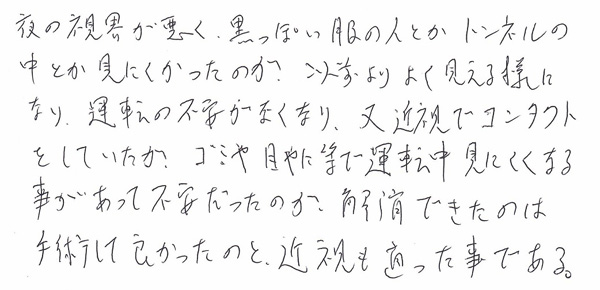 夜の視界が悪く、黒っぽい服の人とか トンネルの
中とか見にくかったのが、以前よりよく見える様に
なり、運転の不安がなくなり、又近視でコンタクト
をしていたが、ゴミや目やに等で運転中見にくくなる
事があって不安だったのが、解消できたのは
手術して良かったのと、近視も直った事である。